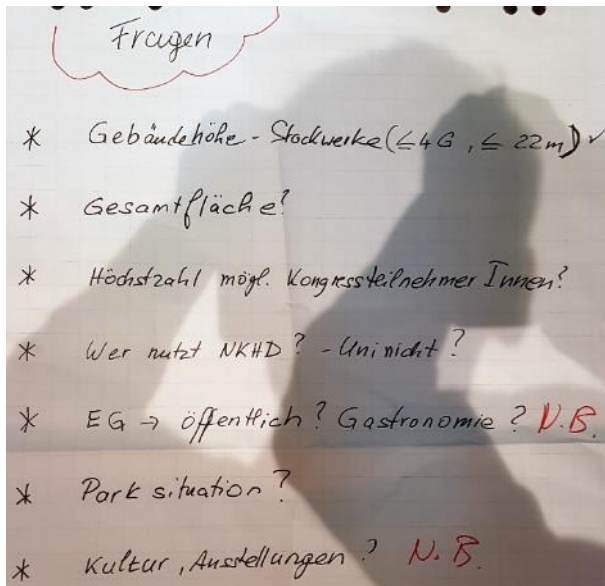 Fragen
* Gebäudehöhe - Stockwerke (≤4G, ≤ 22m) ✓
* Gesamtfläche?
* Höchstzahl mögl. KongressteilnehmerInnen?
* Wer nutzt NKHD? - Uni nicht?
* EG → öffentlich? Gastronomie? N.B.
* Parksituation?
* Kultur, Ausstellungen? N.B.